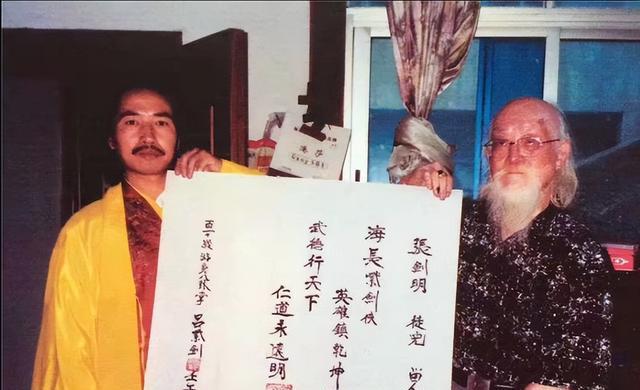 張劍明 徒兒
海長紫劍俠
英雄鎮乾坤
武德行天下
仁道永遠明
呂紫劍
港莎